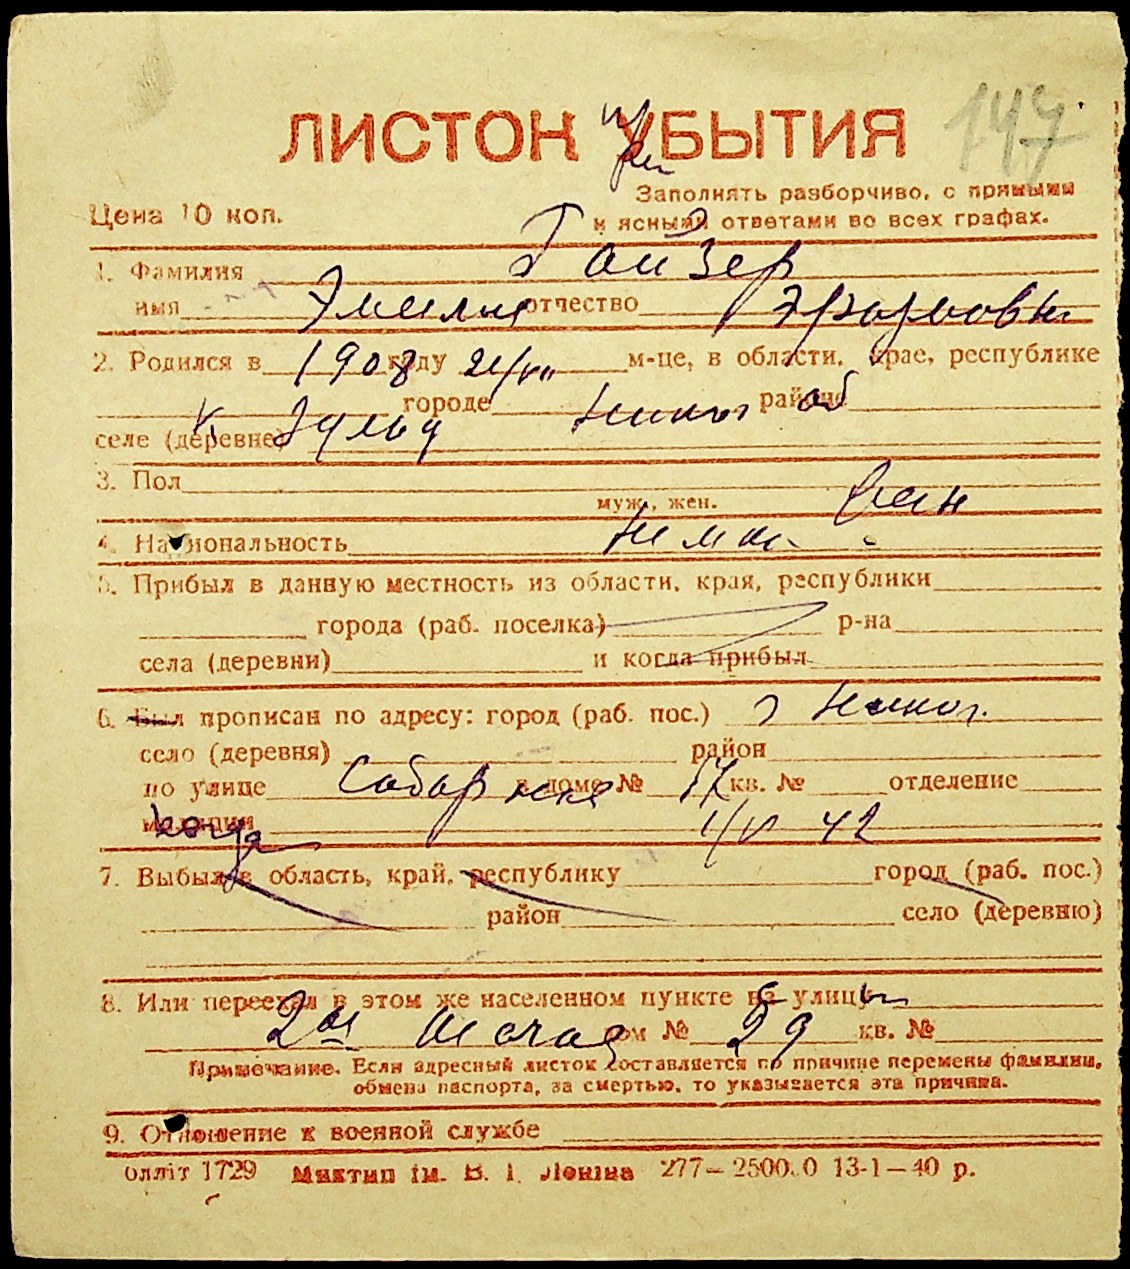 ЛИСТОК УБЫТИЯ
при
147
Заполнять разборчиво, с прямыми
и ясными ответами во всех графах.
Цена 10 коп.
1. Фамилия Гайзер
имя Эмилия отчество
2. Родился в 1908 году 21/VII м-це, в области, крае, республике
городе Никол районе об
селе (деревне)
3. Пол муж., жен. жен
4. Национальность немк.
5. Прибыл в данную местность из области, края, республики
города (раб. поселка) р-на
села (деревни) и когда прибыл
6. Был прописан по адресу: город (раб. пос.) г Никол.
село (деревня) район
по улице Соборная в доме № 17 кв. № отделение
милиции когда 1/V 42
7. Выбыл в область, край, республику город (раб. пос.)
район село (деревню)
8. Или переехал в этом же населенном пункте с улицы
2ая дом № 29 кв. №
Примечание. Если адресный листок составляется по причине перемены фамилии,
обмена паспорта, за смертью, то указывается эта причина.
9. Отношение к военной службе
олліт 1729 Миктип ім. В. І. Леніна 277—2500.0 13-1—40 р.